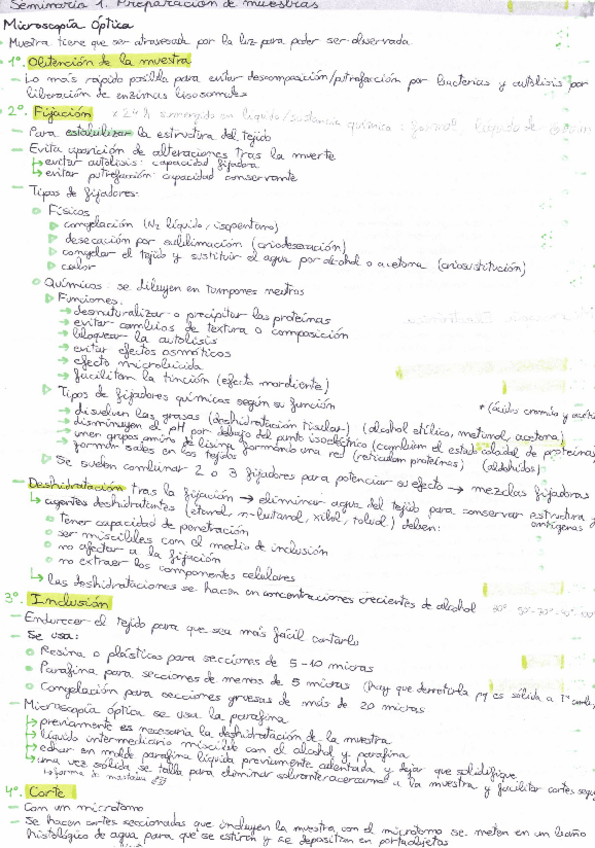 Seminario 1. Preparación de muestras
Microscopía Óptica
Muestra tiene que ser atravesada por la luz para poder ser observada
1º. Obtención de la muestra
- Lo más rápido posible para evitar descomposición/putrefacción por bacterias y autólisis por
liberación de enzimas lisosomales
2º. Fijación x 24 h sumergido en líquido/sustancia química: formol, líquido de
- Para estabilizar la estructura del tejido
- Evita aparición de alteraciones tras la muerte
↳ evitar autólisis: capacidad fijadora
↳ evitar putrefacción: capacidad conservante
- Tipos de fijadores:
Físicos
congelación (N2 líquido, isopentano)
desecación por sublimación (criodesecación)
congelar el tejido y sustituir el agua por alcohol o acetona (criosustitución)
calor
Químicos: se diluyen en tampones neutros
Funciones:
→ desnaturalizar o precipitar las proteínas
→ evitar cambios de textura o composición
→ bloquear la autólisis
→ evitar efectos osmóticos
→ efecto microbicida
→ facilitan la tinción (efecto mordiente)
Tipos de fijadores químicos según su función *(ácidos crómico y
→ disuelven las grasas (deshidratación tisular) (alcohol etílico, metanol, acetona)
→ disminuyen el pH por debajo del punto isoeléctrico (cambian el estado coloidal de proteínas)
→ unen grupos amino de lisina formando una red (reticulan proteínas) (aldehídos)
→ forman sales en los tejidos
Se suelen combinar 2 o 3 fijadores para potenciar su efecto → mezclas fijadoras
- Deshidratación tras la fijación → eliminar agua del tejido para conservar estructura
antígenos
↳ agentes deshidratantes (etanol, n-butanol, xilol, toluol) deben:
tener capacidad de penetración
ser miscibles con el medio de inclusión
no afectar a la fijación
no extraer los componentes celulares
↳ las deshidrataciones se hacen en concentraciones crecientes de alcohol 30º 50º-70º
3º. Inclusión
- Endurecer el tejido para que sea más fácil cortarlo
- Se usa:
Resina o plásticos para secciones de 5-10 micras
Parafina para secciones de menos de 5 micras (hay que derretirla pq es sólida a Tº
Congelación para secciones gruesas de más de 20 micras
- Microscopía óptica se usa la parafina
↳ previamente es necesaria la deshidratación de la muestra
↳ líquido intermediario miscible con el alcohol y parafina
↳ echar en molde parafina líquida previamente calentada y dejar que solidifique
↳ una vez sólida se talla para eliminar a la muestra y facilitar cortes
↳ forma de
4º. Corte
- Con un microtomo
- Se hacen cortes seccionados que incluyen la muestra con el microtomo se meten en un baño
histológico de agua para que se estiren y se depositan en portaobjetos